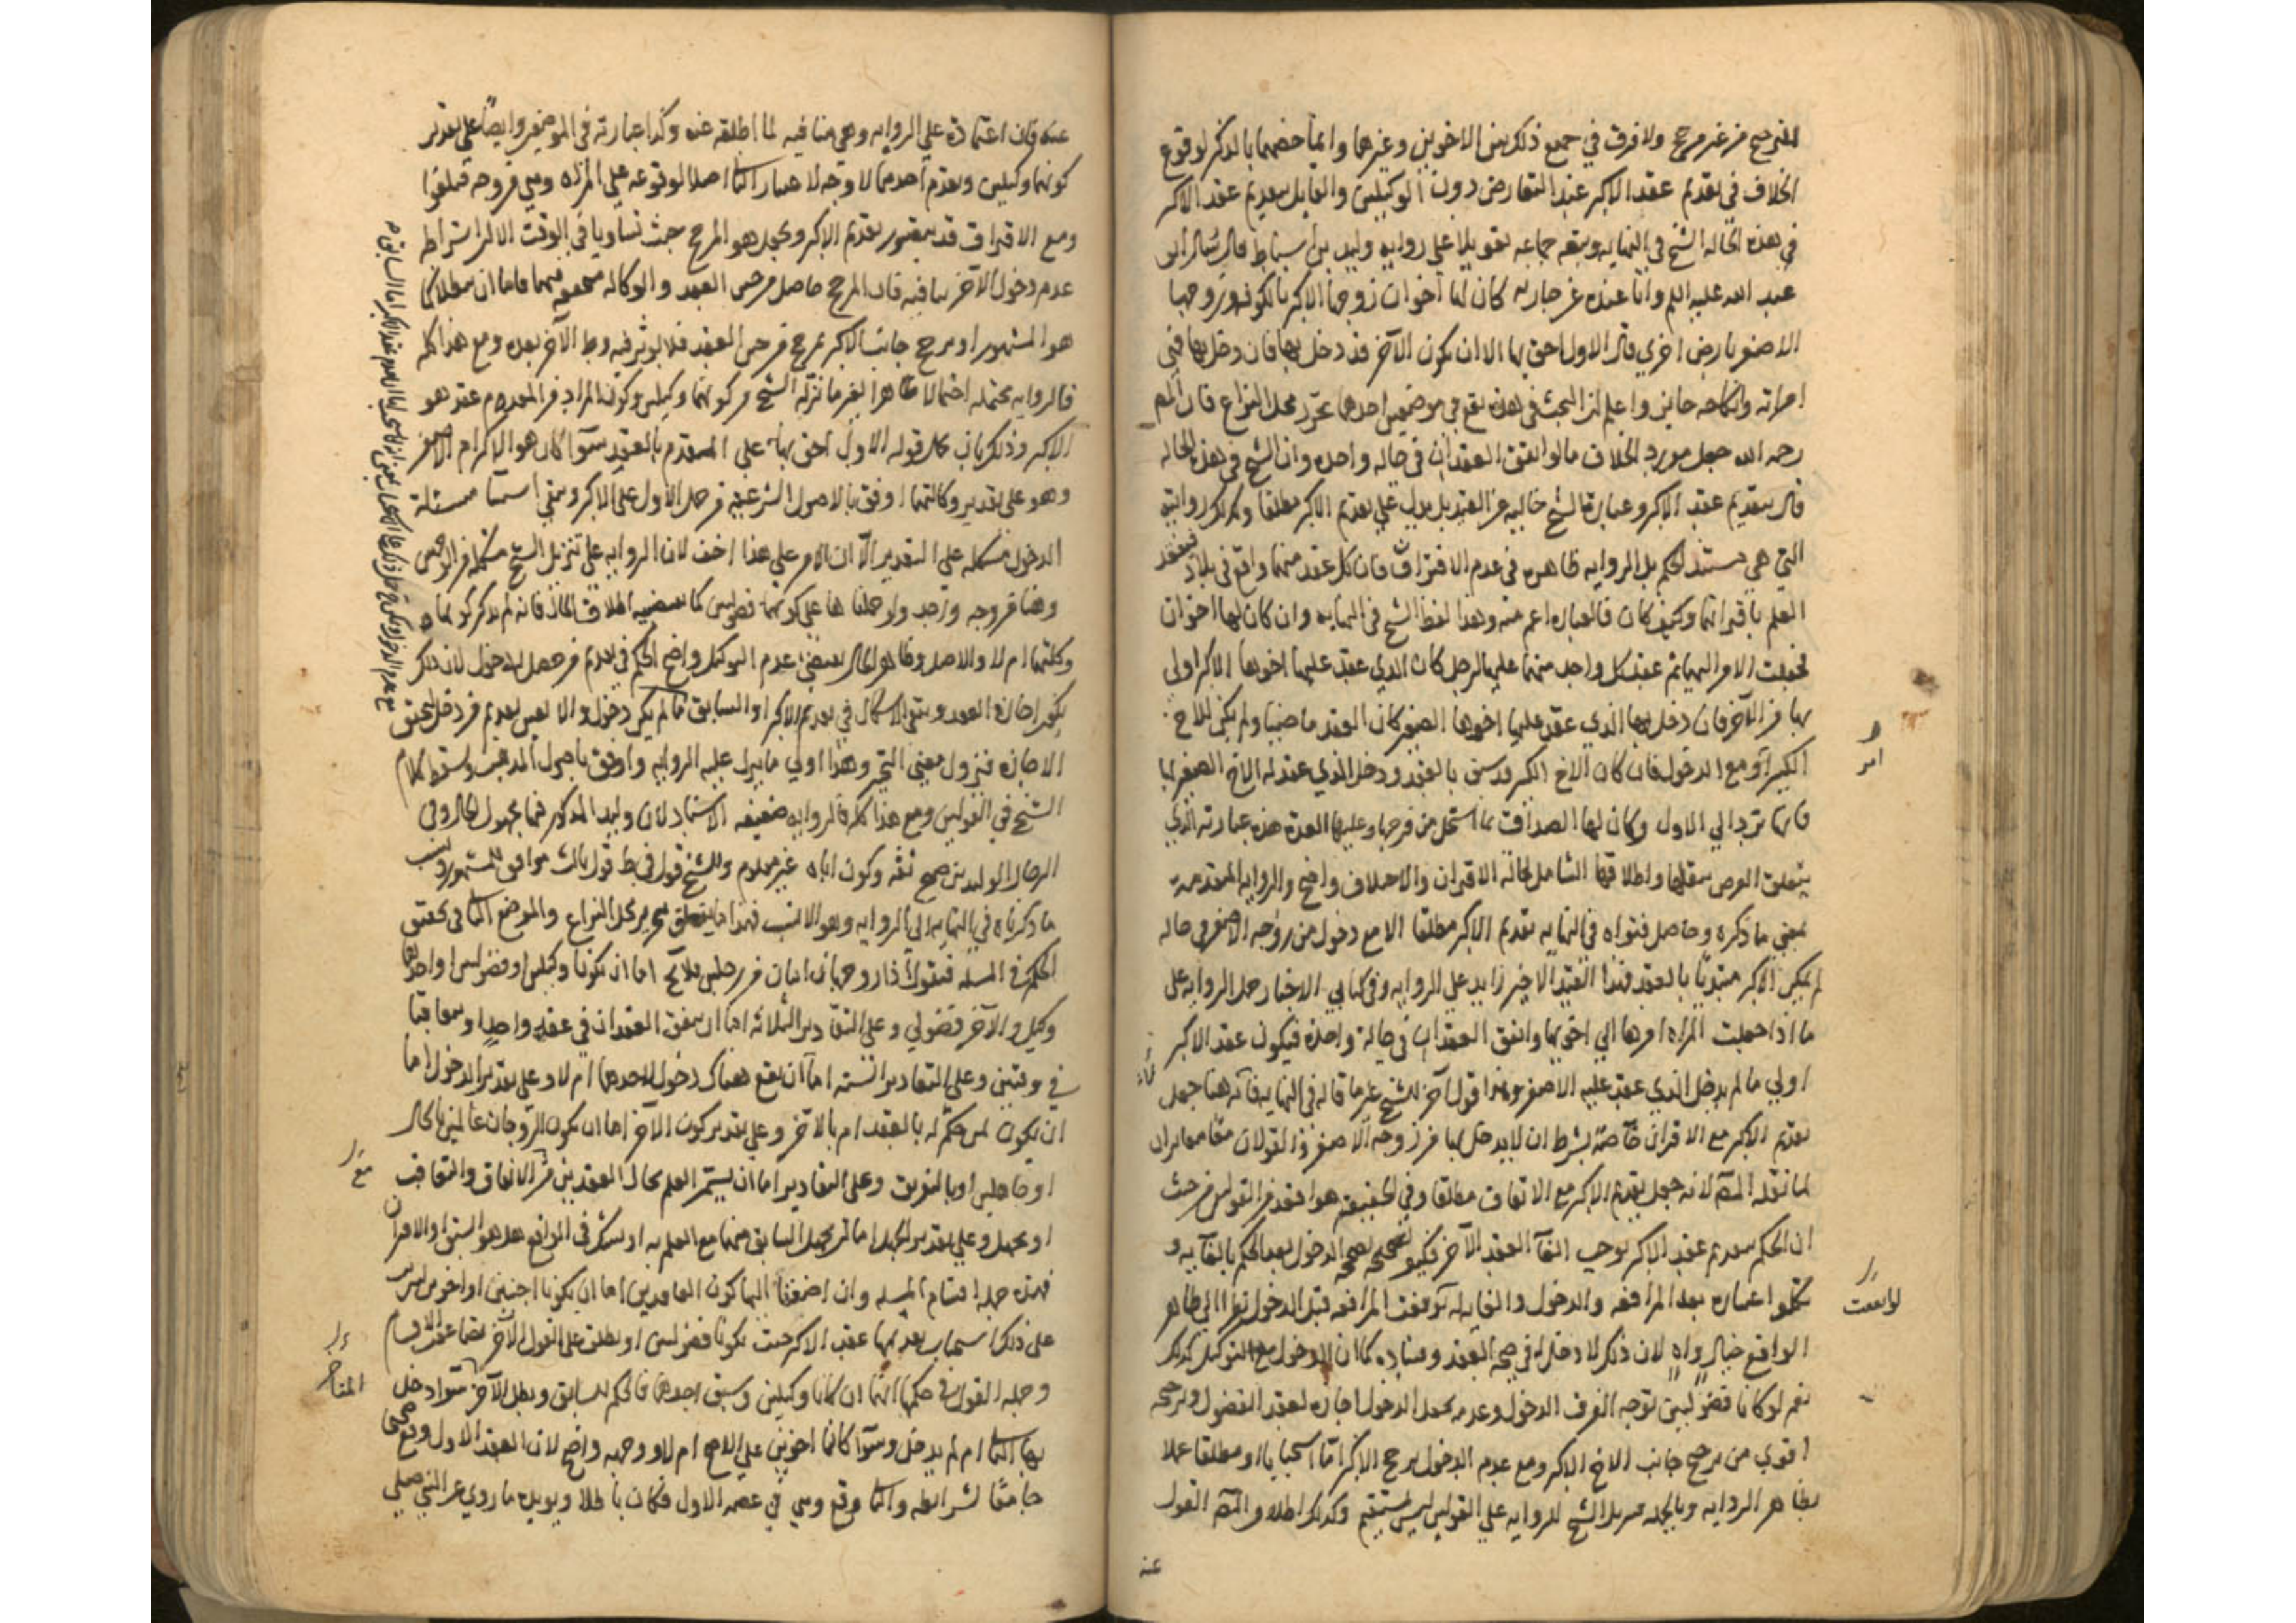 الترجيح من غير مرجح ولا فرق في جميع ذلك بين الاخوين وغيرهما وانما خصهما بالذكر لوقوع
الخلاف في تقديم عقد الاكبر عند التعارض دون الوكيلين والقايل بتقديم عقد الاكبر
في هذه الحاله الشيخ في النهايه وتبعه جماعه تعويلا على روايه وليد بن اسباط قال سئل ابو
عبد الله عليه السلم وانا عنده عن جاريه كان لها اخوان زوجها الاكبر بالكوفه وزوجها
الاصغر بارض اخري قال الاول احق بها الا ان يكون الآخر قد دخل بها فان دخل بها فهي
امراته ونكاحه جايز واعلم ان البحث في هذه يقع في موضعين احدهما تحرير محل النزاع فان المصـ
رحمه الله جعل مورد الخلاف ما لو اتفق العقدان في حاله واحده وان الشيخ في هذه الحاله
قال بتقديم عقد الاكبر وعبارة الشيخ خاليه عن القيد بل يدل علي تقديم الاكبر مطلقا وكذلك روايته
التي هي مستند الحكم بل الروايه ظاهره في عدم الاقتران فان كل عقد منهما واقع في بلاد
العلم باقترانهما وكيف كان فالعباره اعم منه وهذا لفظ الشيخ في النهايه وان كان لها اخوان
فجعلت الامر اليهما ثم عقد كل واحد منهما عليها لرجل كان الذي عقد عليها اخوها الاكبر اولي
بها من الآخر فان دخل بها الذي عقد عليها اخوها الصغير كان العقد ماضيا ولم يكن للاخ
الكبير امر مع الدخول فان كان الاخ الكبير قد سبق بالعقد ودخل الذي عقد له الاخ الصغير بها
فانها ترد الي الاول وكان لها الصداق بما استحل من فرجها وعليها العدة هذه عبارته الذي
يتعلق الغرض بنقلها واطلاقها الشامل لحاله الاقتران والاختلاف واضح والروايه المتقدمه
بمعني ما ذكره وحاصل فتواه في النهايه تقديم الاكبر مطلقا الا مع دخول من زوجه الاصغر في حاله
لم يكن الاكبر مبتديا بالعقد فهذا القيد الاخير زايد علي الروايه وفي كتابي الاخبار حمل الروايه على
ما اذا جعلت المراه امرها الي اخويها واتفق العقدان في حالة واحدة فيكون عقد الاكبر
اولي ما لم يدخل الذي عقد عليه الاصغر وهذا قول آخر للشيخ غير ما قاله في النهايه فانه هنا جعل
تقديم الاكبر مع الاقتران خاصة بشرط ان لا يدخل بها من زوجه الاصغر والقولان معا مغايران
لما نقله المصـ لانه جعل تقديم الاكبر مع الاتفاق مطلقا وفي الحقيقه هو افقد من القولين من حيث
ان الحكم بتقديم عقد الاكبر يوجب الغآ العقد الآخر فكيف يصححه الدخول بعد الحكم بالغآيه و
اعتباره بعد المرافعه والدخول والغايه لو وقعت المرافعه قبل الدخول نظرا الي ظاهر
الواقع خيال واه لان ذلك لا دخل له في صحه العقد وفساده كما ان الدخول مع التوكيل كذلك
نعم لو كانا فضوليين توجه الفرق الدخول وعدمه بجعل الدخول اجازه لعقد الفضولي وترجيحه
اقوي من ترجيح جانب الاخ الاكبر ومع عدم الدخول يرجح الاكبر اما استحبابا او مطلقا عملا
بظاهر الروايه وبالجمله تنزيل الشيخ للروايه علي القولين ليس بمستقيم وكذلك اطلاق المصـ القول
عنه
عنه فان اعتماده علي الروايه وهي منافيه لما اطلقه عنه وكذا عبارته في الموضعين وايضا علي تقدير
كونهما وكيلين وتقدم احدهما لا وجه لاعتبار الثاني اصلا لوقوعه علي المراه وهي زوجه
ومع الاقتران قد يتصور تقديم الاكبر ويجعل هو المرجح حيث تساويا في الوقت الا ان اشتراط
عدم دخول الآخر ينافيه فان المرجح حاصل من حين العقد والوكاله متحققه فيهما فاما ان يبطلا كما
هو المشهور او يرجح جانب الاكبر بمرجح من حين العقد فلا يوثر فيه وطء الآخر بعده ومع هذا كله
فالروايه محتمله احتمالا ظاهرا لغير ما نزله الشيخ من كونهما وكيلين وكون المراد من المقدم عقده هو
الاكبر وذلك بان يحمل قوله الاول احق بها على المتقدم بالعقد سوآ كان هو الاكبر ام الاصغر
وهو على تقدير وكالتهما اوفق بالاصول الشرعيه من حمل الاول على الاكبر ويبقي مسئلة
الدخول مشكله علي التقدير الا ان الامر على هذا اخف لان الروايه علي تنزيل الشيخ مشكله من الوجهين
وهنا من وجه واحد ولو حملناها علي كونهما فضوليين كما يقتضيه اطلاق الحال فانه لم يذكر كونهما
وكلتهما ام لا والاصل وظاهر الحال يقتضي عدم التوكيل واضح الحكم في تقديم من حصل له الدخول لان ذلك
اجازه العقد ويبقي الاشكال في تقديم الاكبر او السابق ما لم يكن دخول والا تعين تقديم من دخل لتحقق
الاجازه فيزول معني التخير وهذا اولي ما ينزل عليه الروايه واوفق باصول المذهب وسقط كلام
الشيخ في القولين ومع هذا كله فالروايه ضعيفه الاسناد لان وليد المذكور فيها مجهول الحال وفي
الرجال الوليد بن صبيح ثقه وكون اياه غير معلوم وللشيخ قول في ط قول ثالث موافق للمشهور
ما ذكرناه في النهايه الي الروايه وهو الانسب فهذا ما يتعلق بتحرير محل النزاع والموضع الثاني في تحقق
الحكم في المسله فنقول اذا زوجها اثنان من رجلين فلا يخ اما ان يكونا وكيلين او فضوليين او احدهما
وكيل والآخر فضولي وعلي التقادير الثلاثه اما ان يتفق العقدان في عقد واحد او يتعاقبا
في وقتين وعلي التقادير الستة اما ان يقع هناك دخول لاحدهما ام لا وعلى تقدير الدخول اما
ان يكون لمن حكم له بالعقد ام بالآخر وعلي تقدير كون الآخر اما ان يكون الزوجان عالمين بالحال
او جاهلين او بالتفريق وعلى التقادير اما ان يستمر العلم بحال العقدين من الاتفاق والتعاقب
او يجهل وعلي تقدير الجهل اما ان يجهل السابق منهما مع العلم به او يشك في الواقع هل هو السبق او الاقتران
فهذه جمله اقسام المسله وان اضفنا اليها كون العاقدين اما ان يكونا اجنبيين او اخوين
على ذلك استحباب تقديمها عقد الاكبر حيث يكونا فضوليين او بطلت علي القول الآخر تضاعفت الاقسام
وجمله القول في حكمها انهما ان كانا وكيلين وسبق احدهما فالحكم للسابق وبطل الآخر سوآ دخل
بها الثاني ام لم يدخل وسوآ كانا اخوين علي الاصح ام لا ووجهه واضح لان العقد الاول وقع صحيحا
جامعا لشرايطه والثاني وقع وهي في عصمه الاول فكان باطلا ويويده ما روي عن النبي صلي